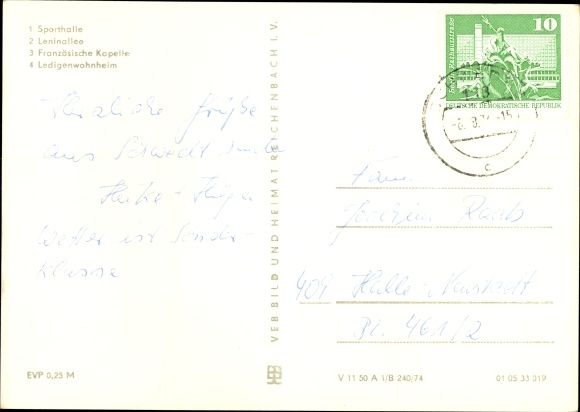 1 Sporthalle
2 Leninallee
3 Französische Kapelle
4 Ledigenwohnheim
Herzliche Grüße
aus Schwedt
Wetter ist Sonder-
klasse
VEB BILD UND HEIMAT REICHENBACH I. V.
10
Rathausstraße
DEUTSCHE DEMOKRATISCHE REPUBLIK
118
c
Fam.
Joachim Raab
409 Halle-Neustadt
Bl. 461/2
EVP 0,25 M
V 11 50 A 1/B 240/74
01 05 33 019